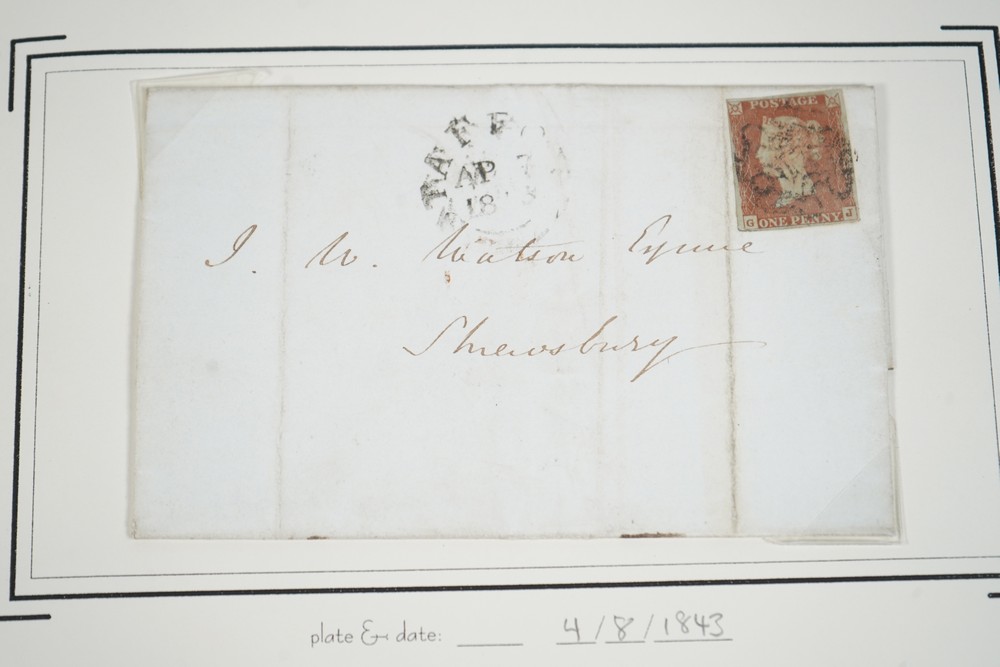 AP 7
18
POSTAGE
G ONE PENNY J
J. W. Watson Esquire
Shrewsbury
plate & date: ____ 4/8/1843